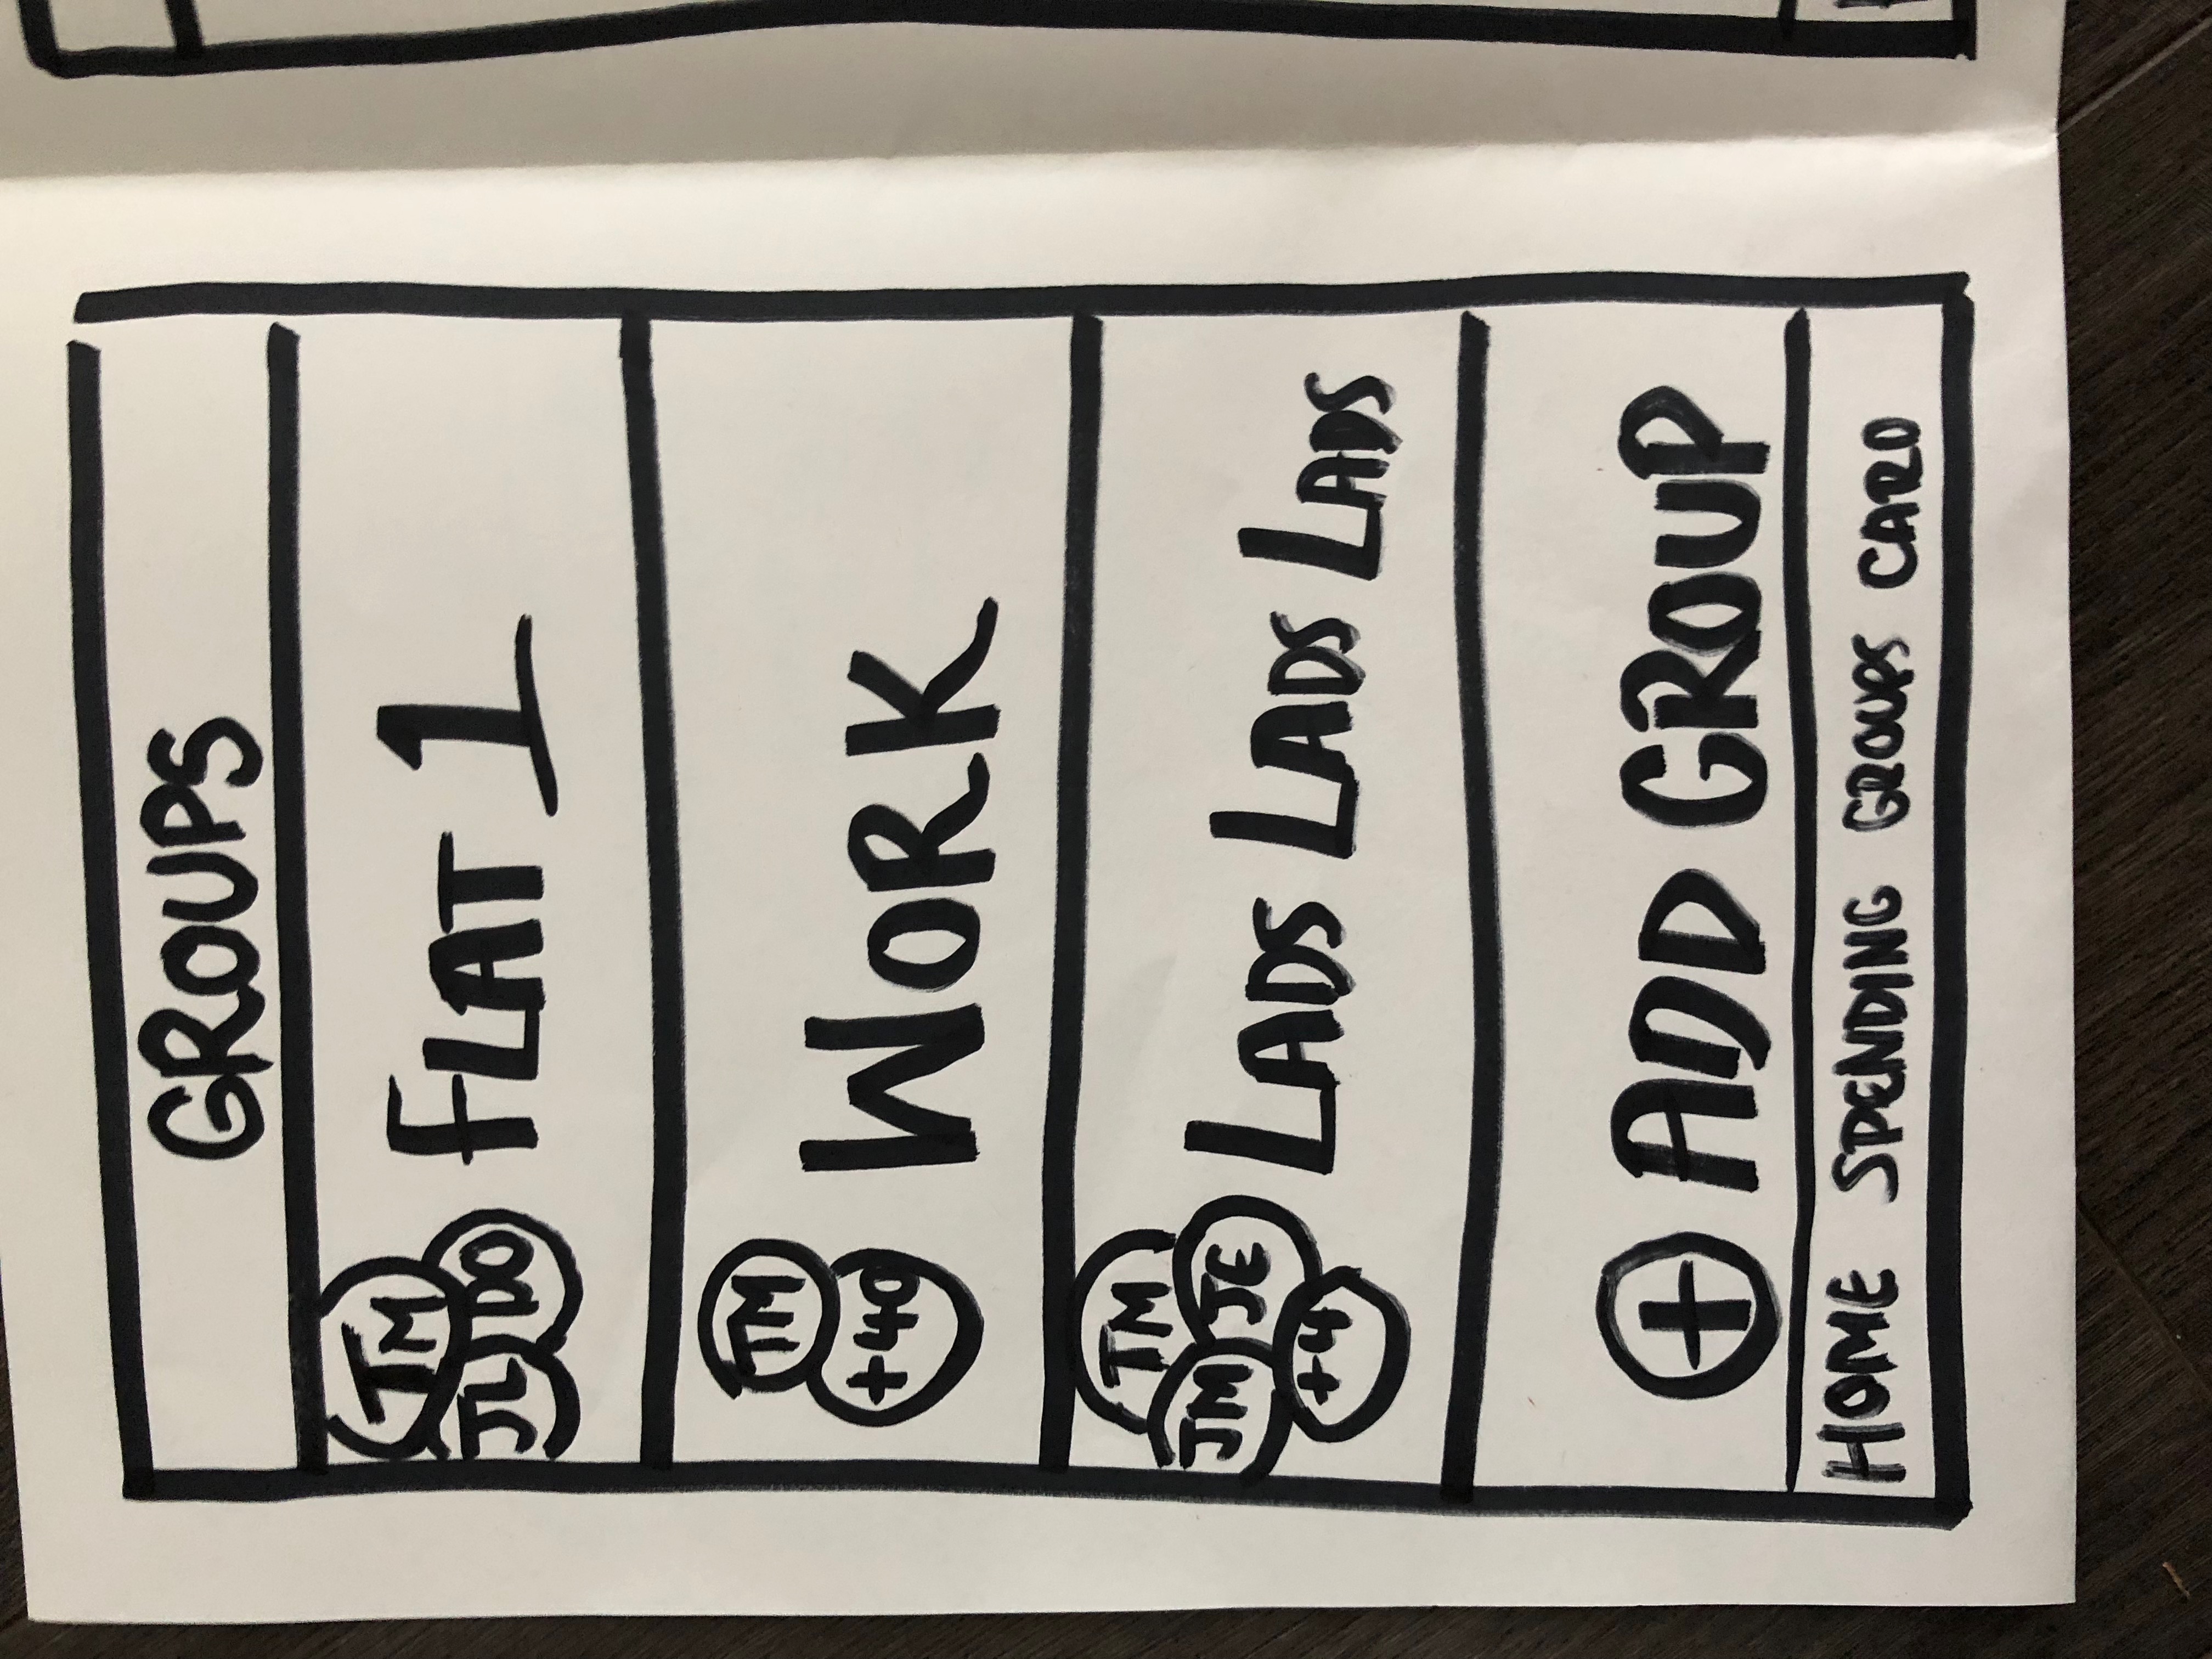 GROUPS
TM
JL DO
FLAT 1
TM
+40
WORK
TM
JM JE
+4
LADS LADS LADS
+ ADD GROUP
HOME SPENDING GROUPS CARD